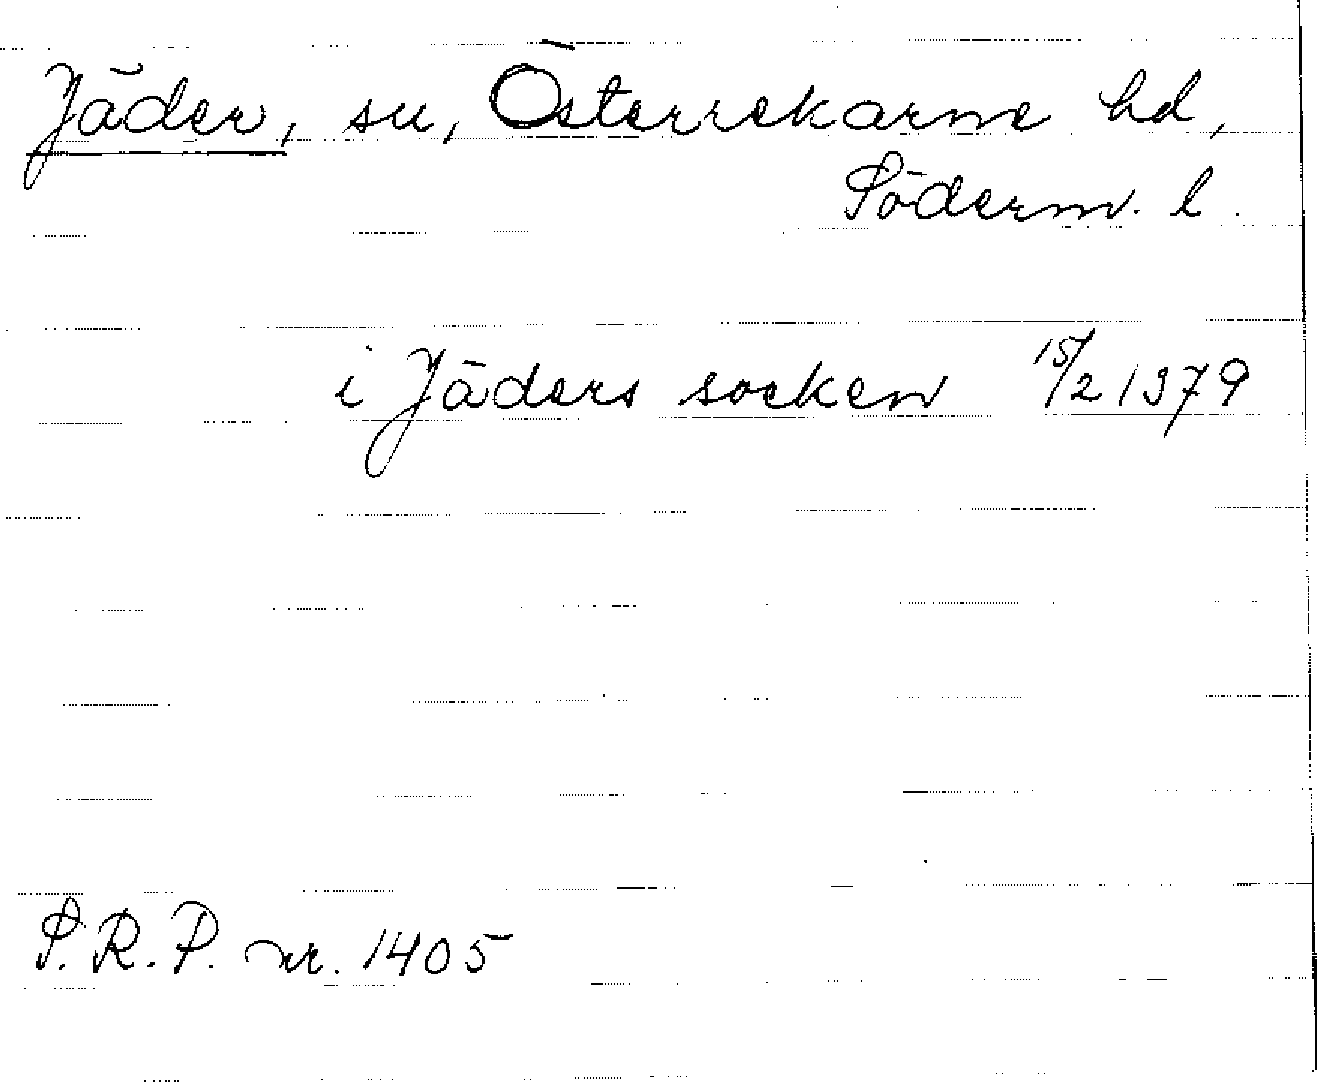 Jäder, sn, Österrekarne hd,
Söderm. l.
i Jäders socken 15/2 1379
S.R.P. nr. 1405